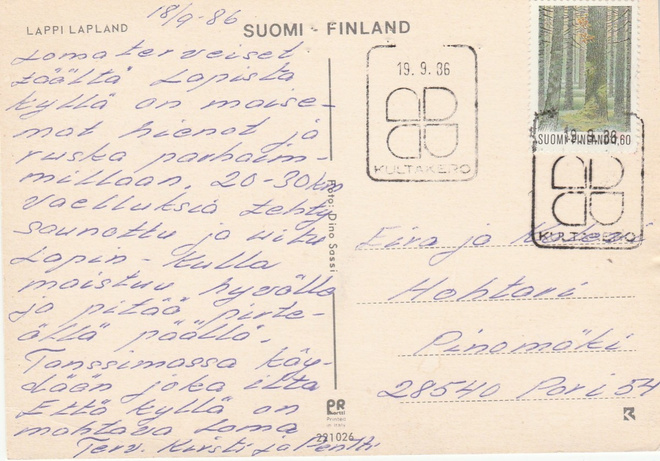 LAPPI LAPLAND
18/9-86
SUOMI - FINLAND
Lomaterveiset
täältä Lapista
kyllä on maise-
mat hienot ja
ruska parhaim-
millaan. 20-30km
vaelluksia tehty
saunottu ja uitu
Lapin-Kulla
maistuu hyvälle
ja pitää pirte-
ällä päällä.
Tanssimassa käy-
dään joka ilta
Että kyllä on
mahtava loma
Terv. Kirsti ja Pentti
Foto: Dino Sassi
PR
Printed
in Italy
221026
19.9.86
KULTAKERO
SUOMI-FINLAND 1,60
19.9.86
KULTAKERO
Eira ja
Hohtari
Pinomäki
28540 Pori 54